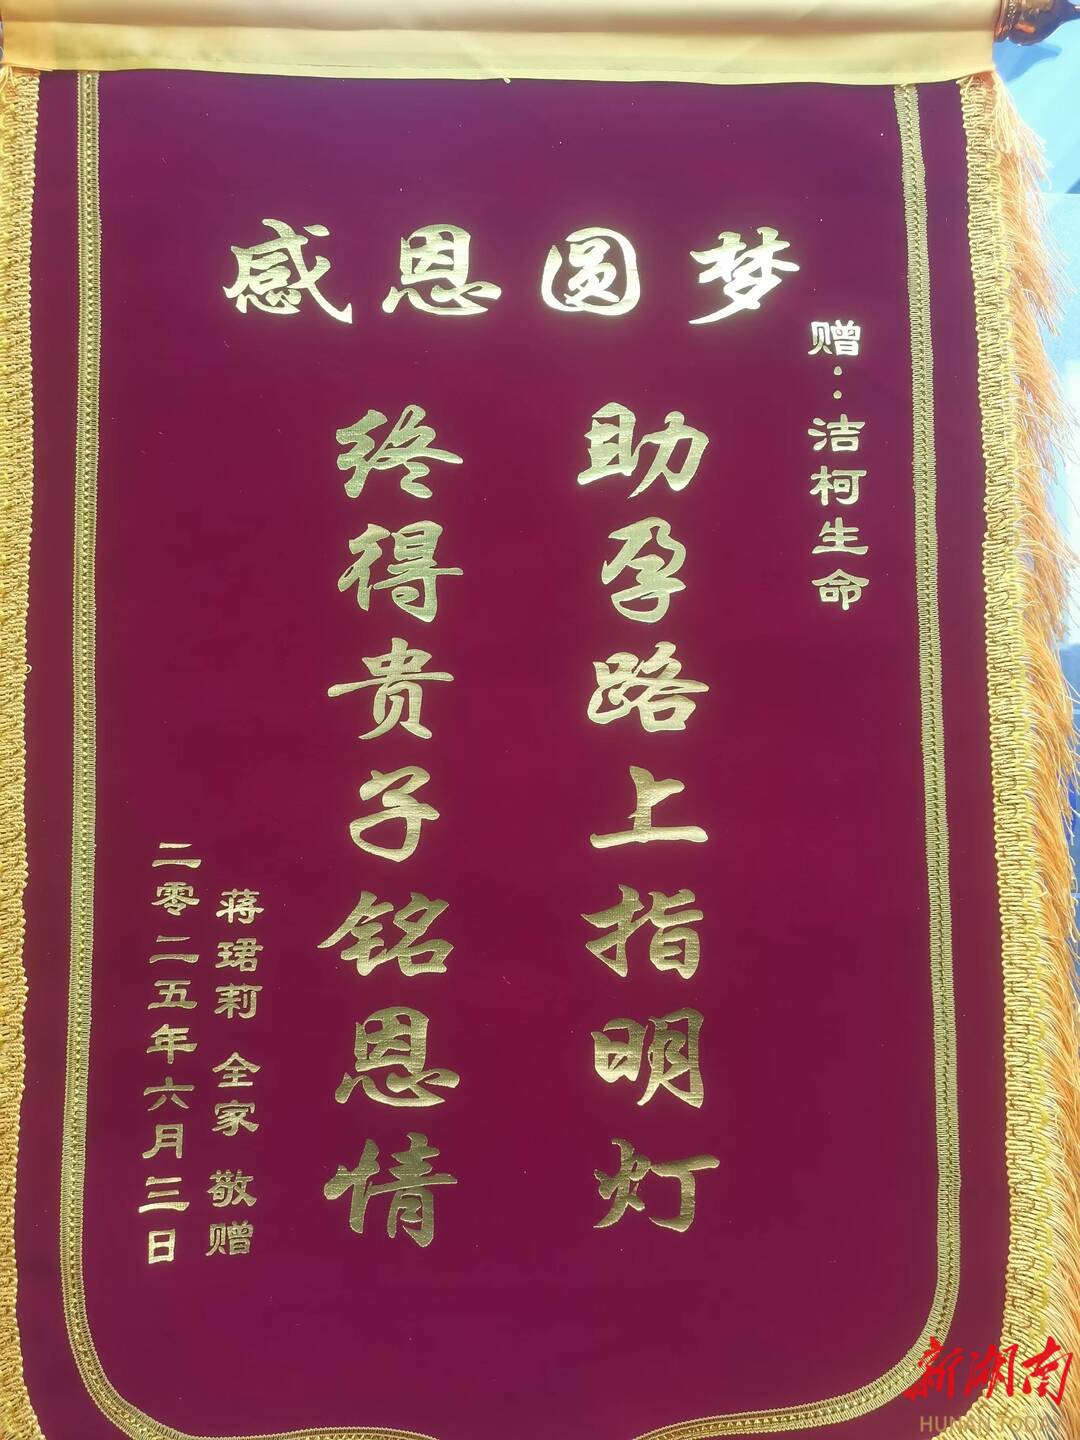 感恩圆梦
赠：洁柯生命
助孕路上指明灯
终得贵子铭恩情
蒋珺莉 全家 敬赠
二零二五年六月三日
新湖南
HUNAN TODAY